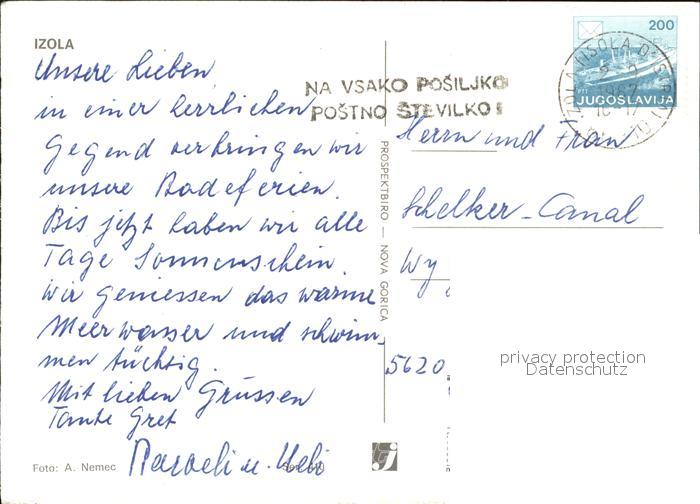 IZOLA
Unsere Lieben,
in einer herrlichen
Gegend verbringen wir
unsere Badeferien.
Bis jetzt haben wir alle
Tage Sonnenschein.
Wir geniessen das warme
Meerwasser und schwim-
men tüchtig.
Mit lieben Grüssen
Tante Gret
u. Ueli
Foto: A. Nemec
PROSPEKTBIRO — NOVA GORICA
NA VSAKO POŠILJKO
POŠTNO ŠTEVILKO!
200
JUGOSLAVIJA
IZOLA ISOLA
Herrn und Frau
Schelker-Canal
Wy
5620
privacy protection
Datenschutz